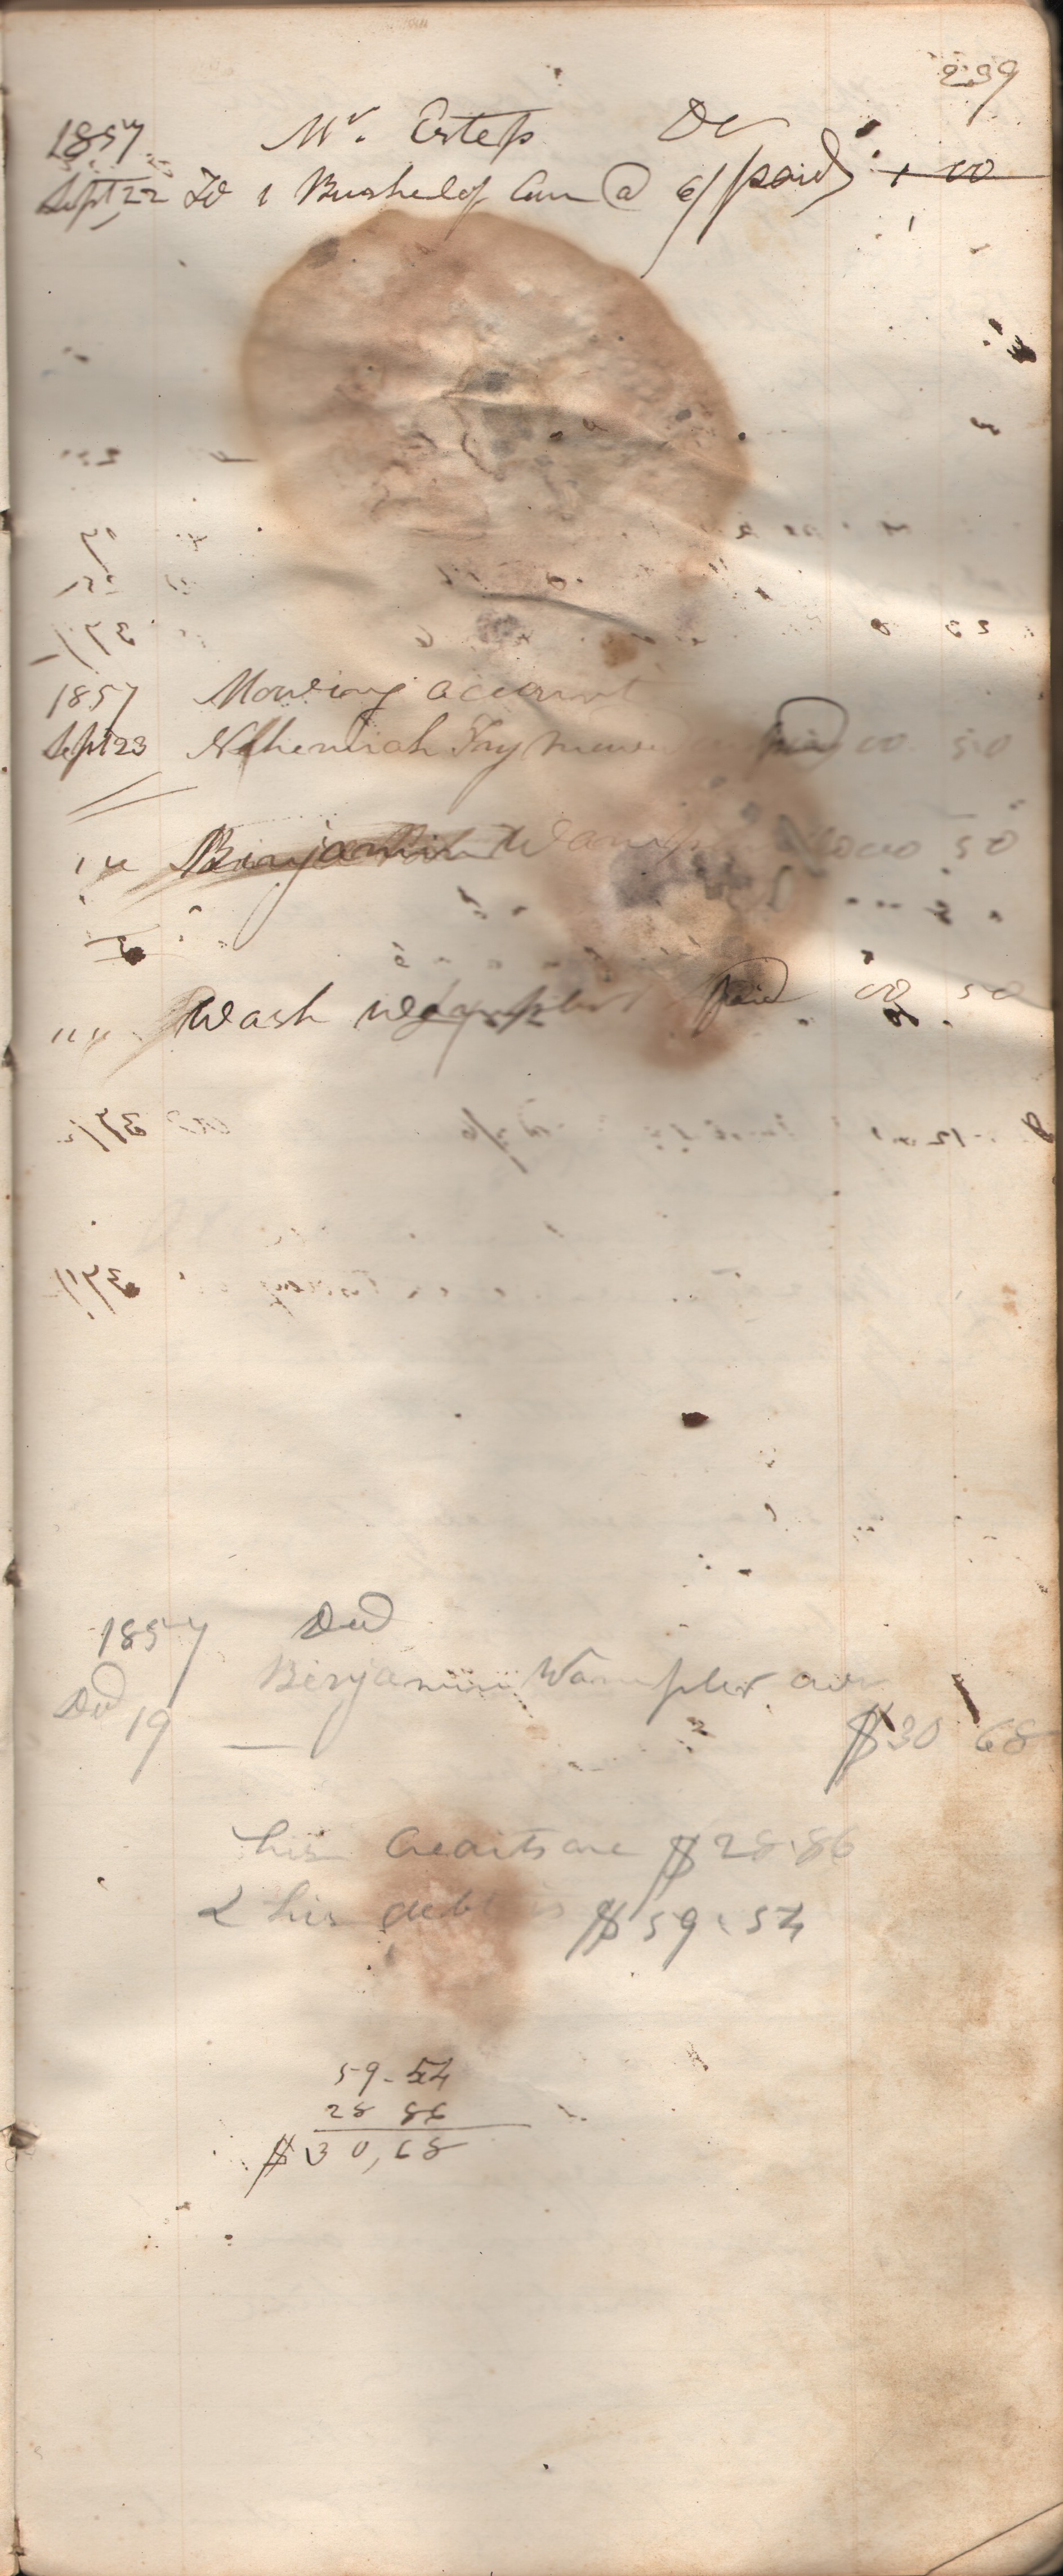 239
1857 Mr. Estep Dr
Sept 22 To 1 Bushel of Corn @ 6/ paid 1 00
1857 Mowing account
Sept 23 Nehemiah Fry paid 00 50
" " Benjamin Wampler 00 50
" " Wash Wampler paid 00 50
1857 Decd
Decd 19 Benjamin Wampler
$30 68
his Credits are $28.86
& his debt is $59.54
59.54
28 86
$30,68